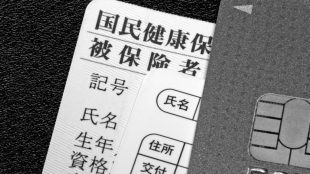 国民健康保
被保険者
記号
氏名
生年
資格
氏名
住所
交付